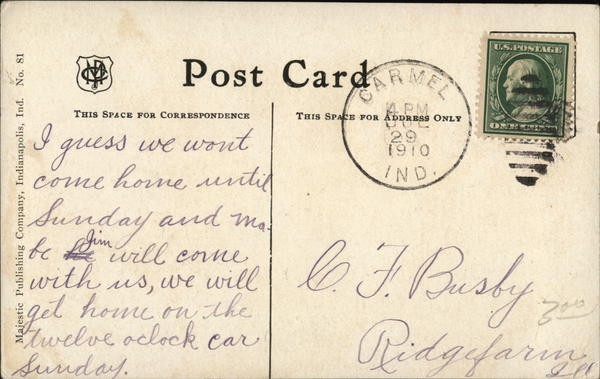 Majestic Publishing Company, Indianapolis, Ind. No. 81
Post Card
THIS SPACE FOR CORRESPONDENCE
THIS SPACE FOR ADDRESS ONLY
CARMEL
4 PM
JUL
29
1910
IND.
U.S. POSTAGE
ONE CENT
I guess we wont
come home until
Sunday and ma-
be Jim will come
with us, we will
get home on the
twelve oclock car
Sunday.
C. F. Busby
Ridgefarm
Ill
3 00